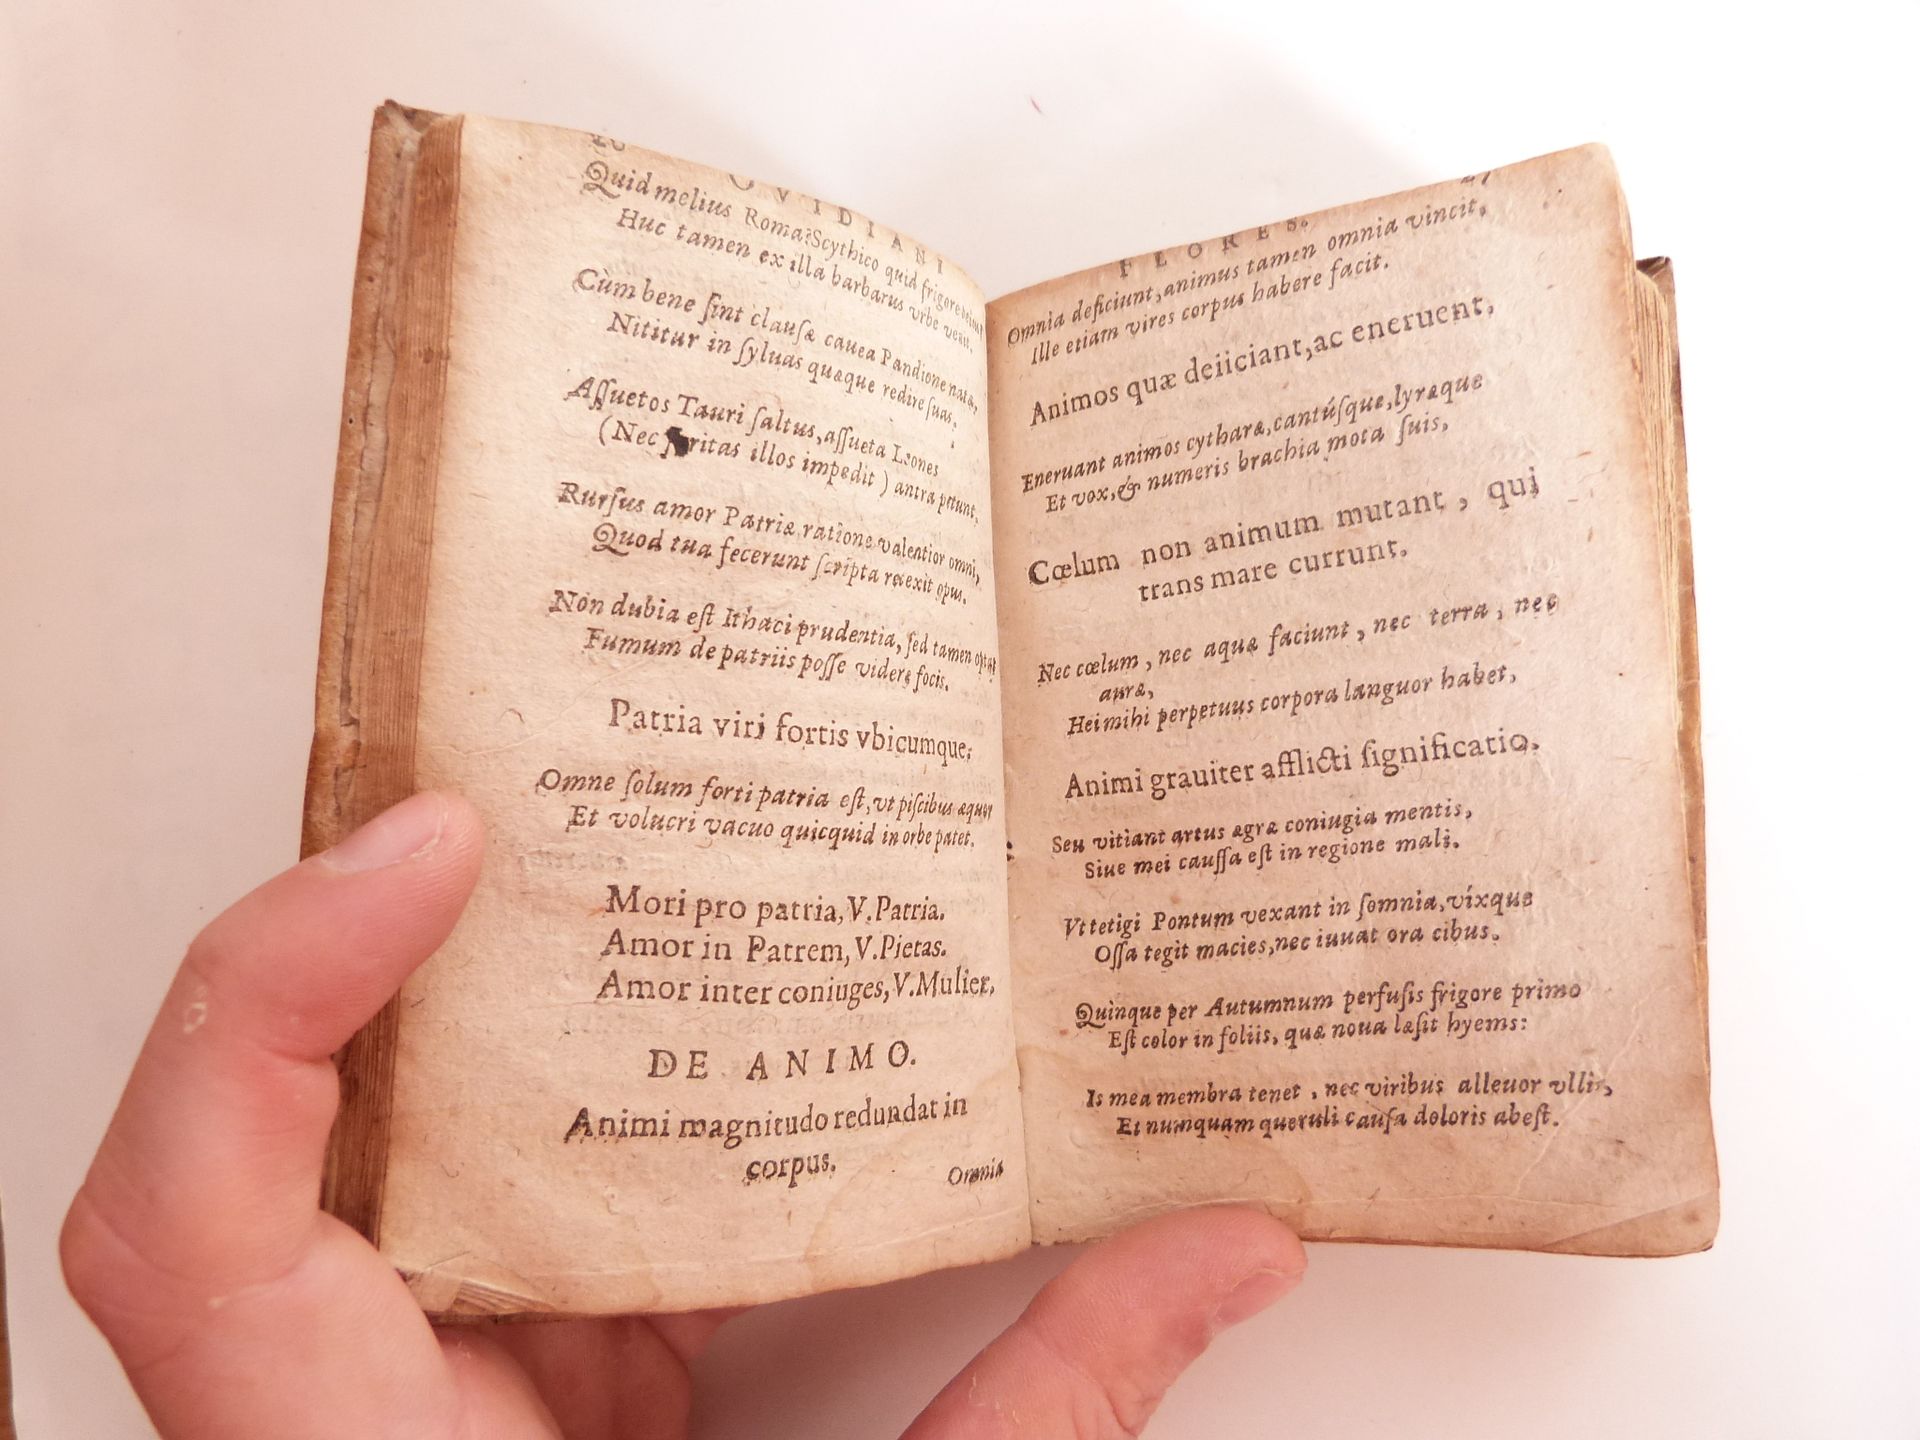 OVIDIANI
Quid melius Roma? Scythico quid frigore
Huc tamen ex illa barbarus vrbe venit.
Cùm bene ſint clauſæ cauea Pandione natæ,
Nititur in ſyluas quæque redire ſuas.
Aſſuetos Tauri ſaltus, aſſueta Leones
(Nec feritas illos impedit) antra petunt,
Rurſus amor Patriæ ratione valentior omni,
Quod tua fecerunt ſcripta retexit opus.
Non dubia eſt Ithaci prudentia, ſed tamen optat
Fumum de patriis poſſe videre focis.
Patria viri fortis vbicumque.
Omne ſolum forti patria eſt, vt piſcibus æquor
Et volucri vacuo quicquid in orbe patet.
Mori pro patria, V. Patria.
Amor in Patrem, V. Pietas.
Amor inter coniuges, V. Mulier.
DE ANIMO.
Animi magnitudo redundat in
corpus.
Omnia
FLORES. 27
Omnia deficiunt, animus tamen omnia vincit,
Ille etiam vires corpus habere facit.
Animos quæ deiiciant, ac eneruent.
Eneruant animos cytharæ, cantúſque, lyræque
Et vox, & numeris brachia mota ſuis.
Cœlum non animum mutant, qui
trans mare currunt.
Nec cœlum, nec aquæ faciunt, nec terra, nec
auræ,
Hei mihi perpetuus corpora languor habet,
Animi grauiter afflicti ſignificatio.
Seu vitiant artus ægræ coniugia mentis,
Siue mei cauſſa eſt in regione mali.
Vt tetigi Pontum vexant in ſomnia, víxque
Oſſa tegit macies, nec iuuat ora cibus.
Quinque per Autumnum perfuſis frigore primo
Eſt color in foliis, quæ noua læſit hyems:
Is mea membra tenet, nec viribus alleuor vllis,
Et numquam queruli cauſa doloris abeſt.